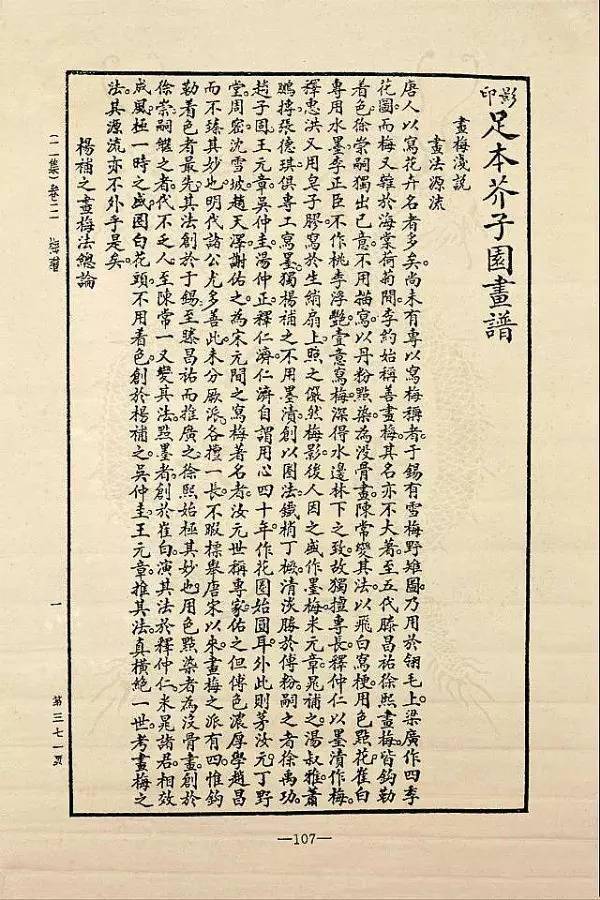 影印足本芥子園畫譜
畫梅淺說
畫法源流
唐人以寫花卉名者多矣。尚未有專以寫梅稱者。于錫有雪梅野雉圖。乃用於翎毛上。梁廣作四季
花圖。而梅又雜於海棠荷菊間。李約始稱善畫梅。其名亦不大著。至五代滕昌祐徐熙畫梅。皆鈎勒
着色。徐崇嗣獨出己意。不用描寫。以丹粉點染。為沒骨畫。陳常變其法。以飛白寫梗。用色點花。崔白
專用水墨。李正臣不作桃李浮艷。壹意寫梅。深得水邊林下之致。故獨擅專長。釋仲仁以墨漬作梅。
釋惠洪又用皂子膠。寫於生綃扇上。照之儼然梅影。後人因之。盛作墨梅。米元章晁補之湯叔雅蕭
鵬摶張德琪俱專工寫墨。獨楊補之不用墨漬。創以圈法。鐵梢丁橛。清淡勝於傅粉。嗣之者徐禹功
趙子固王元章吳仲圭湯仲正釋仁濟。仁濟自謂用心四十年。作花圈始圓耳。外此則茅汝元丁野
堂周密沈雪坡趙天澤謝佑之。為宋元間之寫梅著名者。汝元世稱專家。佑之但傅色濃厚。學趙昌
而不臻其妙也。明代諸公尤多善此。未分厥派。各擅一長。不暇標舉。唐宋以來畫梅之派有四。惟鈎
勒着色者最先。其法創於于錫。至滕昌祐而推廣之。徐熙始極其妙也。用色點染者為沒骨畫。創於
徐崇嗣。繼之者代不乏人。至陳常一又變其法。點墨者創於崔白。演其法於釋仲仁。米晁諸君相效
成風。極一時之盛。圈白花頭。不用着色。創於楊補之。吳仲圭王元章推其法。真橫絕一世。考畫梅之
法。其源流亦不外乎是矣。
楊補之畫梅法總論
（二集）卷二 梅譜 一 第三七一頁
—107—